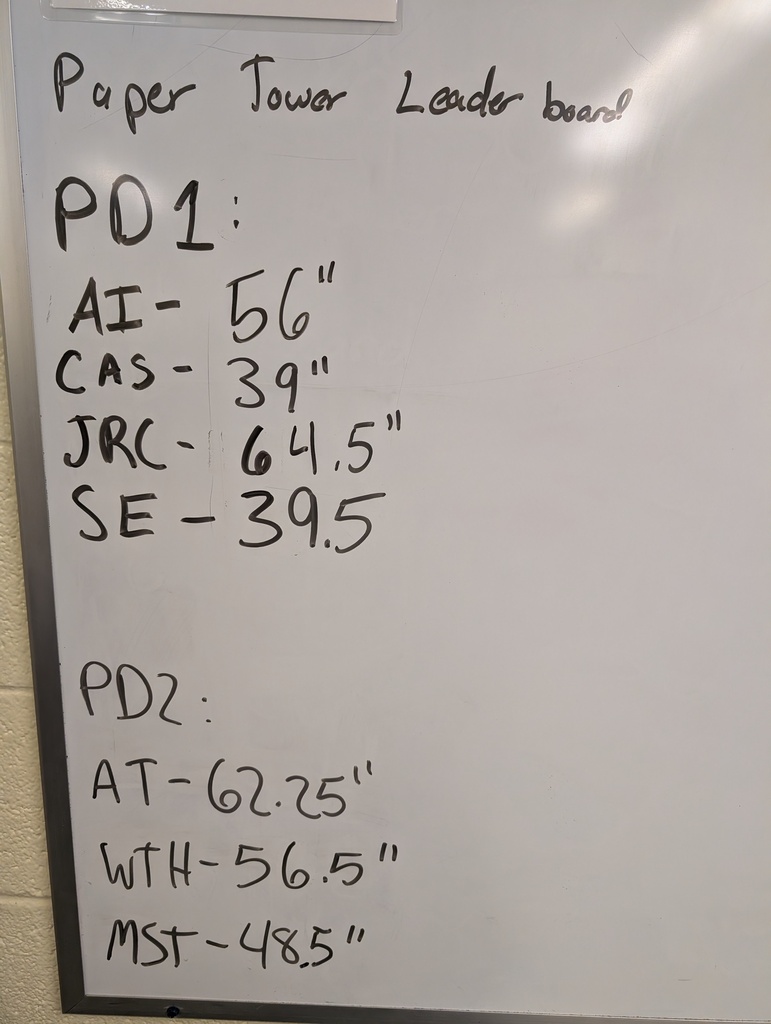 Paper Tower Leader board
PD1:
AI- 56"
CAS- 39"
JRC- 64.5"
SE-39.5
PD2:
AT-62.25"
WTH-56.5"
MST-48.5"